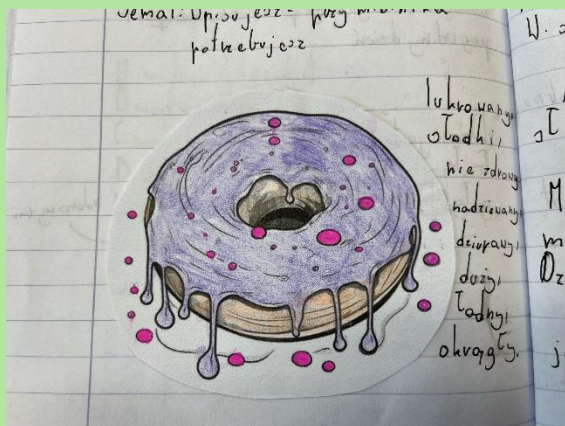 Temat: Opisujesz - przymiotnika
potrzebujesz
lukrowany,
słodki,
nie zdrowy,
nadziewany,
dziurawy,
duży,
ładny,
okrągły.